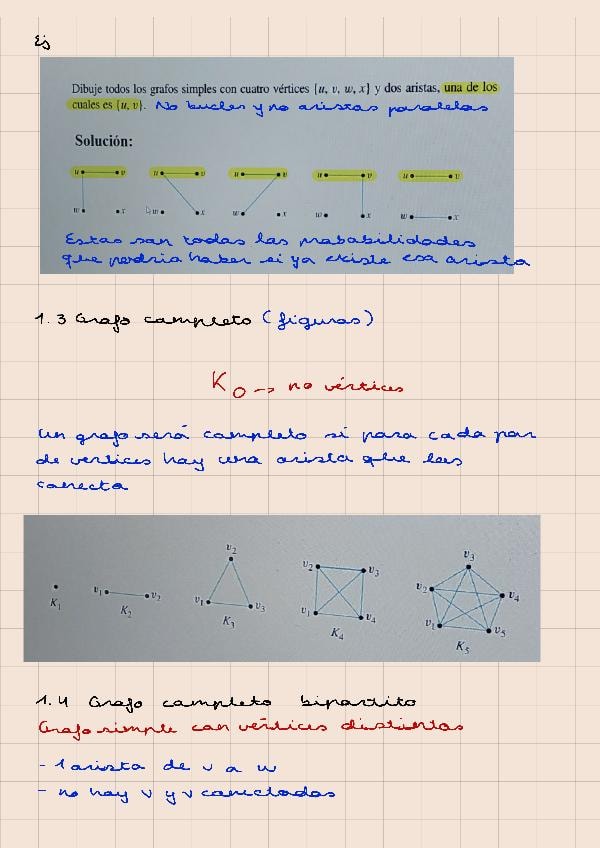 Ej
Dibuje todos los grafos simples con cuatro vértices {u, v, w, x} y dos aristas, una de los
cuales es {u, v}. No bucles y no aristas paralelas
Solución:
u v u v u v u v u v
w x w x w x w x w x
Estas son todas las probabilidades
que podria haber si ya existe esa arista
1.3 Grafo completo (figuras)
K0 -> no vértices
Un grafo será completo si para cada par
de vertices hay una arista que las
conecta
v2
v2 v3 v3
v1 v2 v2 v4
v1 v3 v1 v4 v1 v5
K1 K2 K3 K4 K5
1.4 Grafo completo bipartito
Grafo simple con vértices distintos
- 1 arista de v a w
- no hay v y v conectados